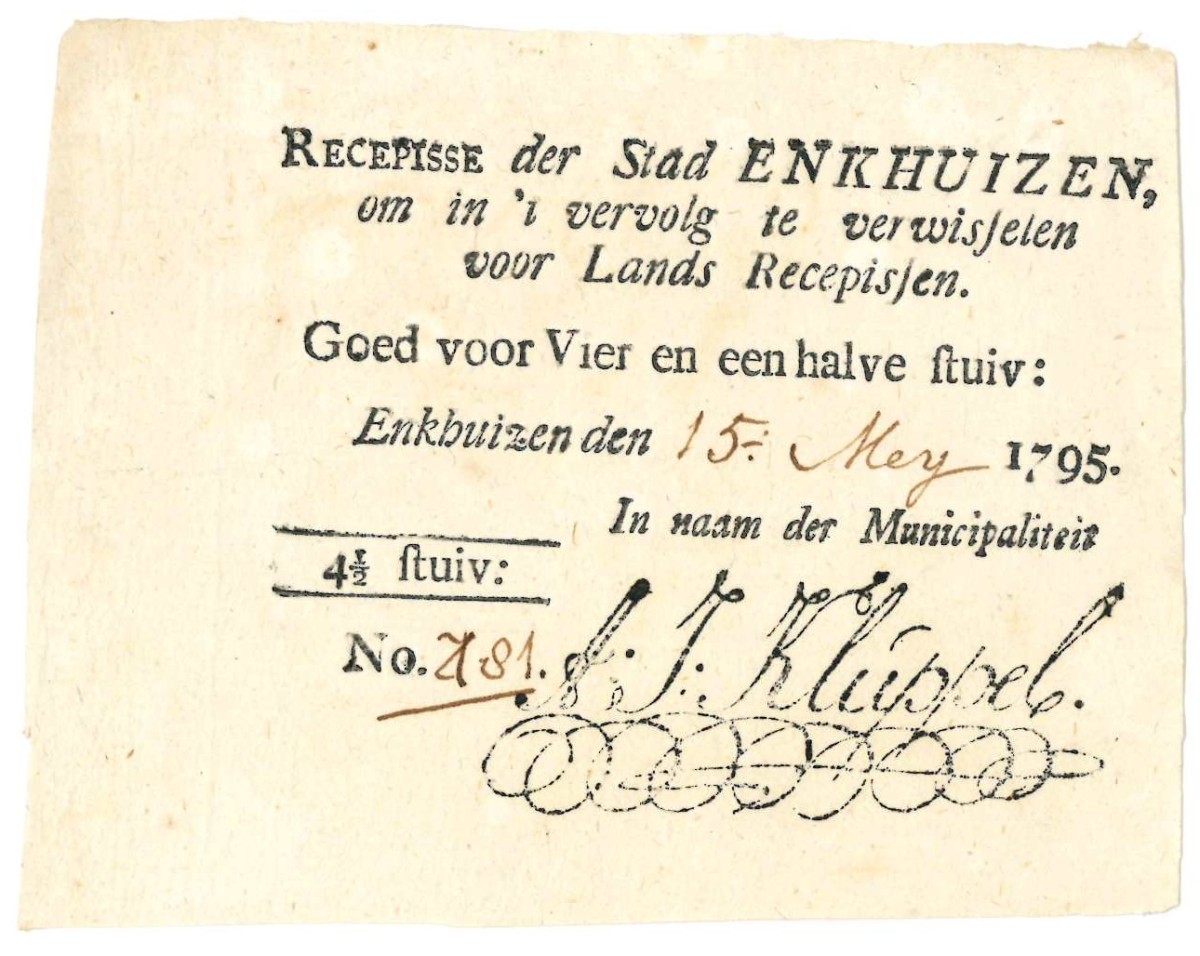 RECEPISSE der Stad ENKHUIZEN,
om in 't vervolg te verwisſelen
voor Lands Recepisſen.
Goed voor VIER en een halve ſtuiv:
Enkhuizen den 15: Mey 1795.
In naam der Municipaliteit
4½ ſtuiv:
No. 781.
A: J: Klüppel.